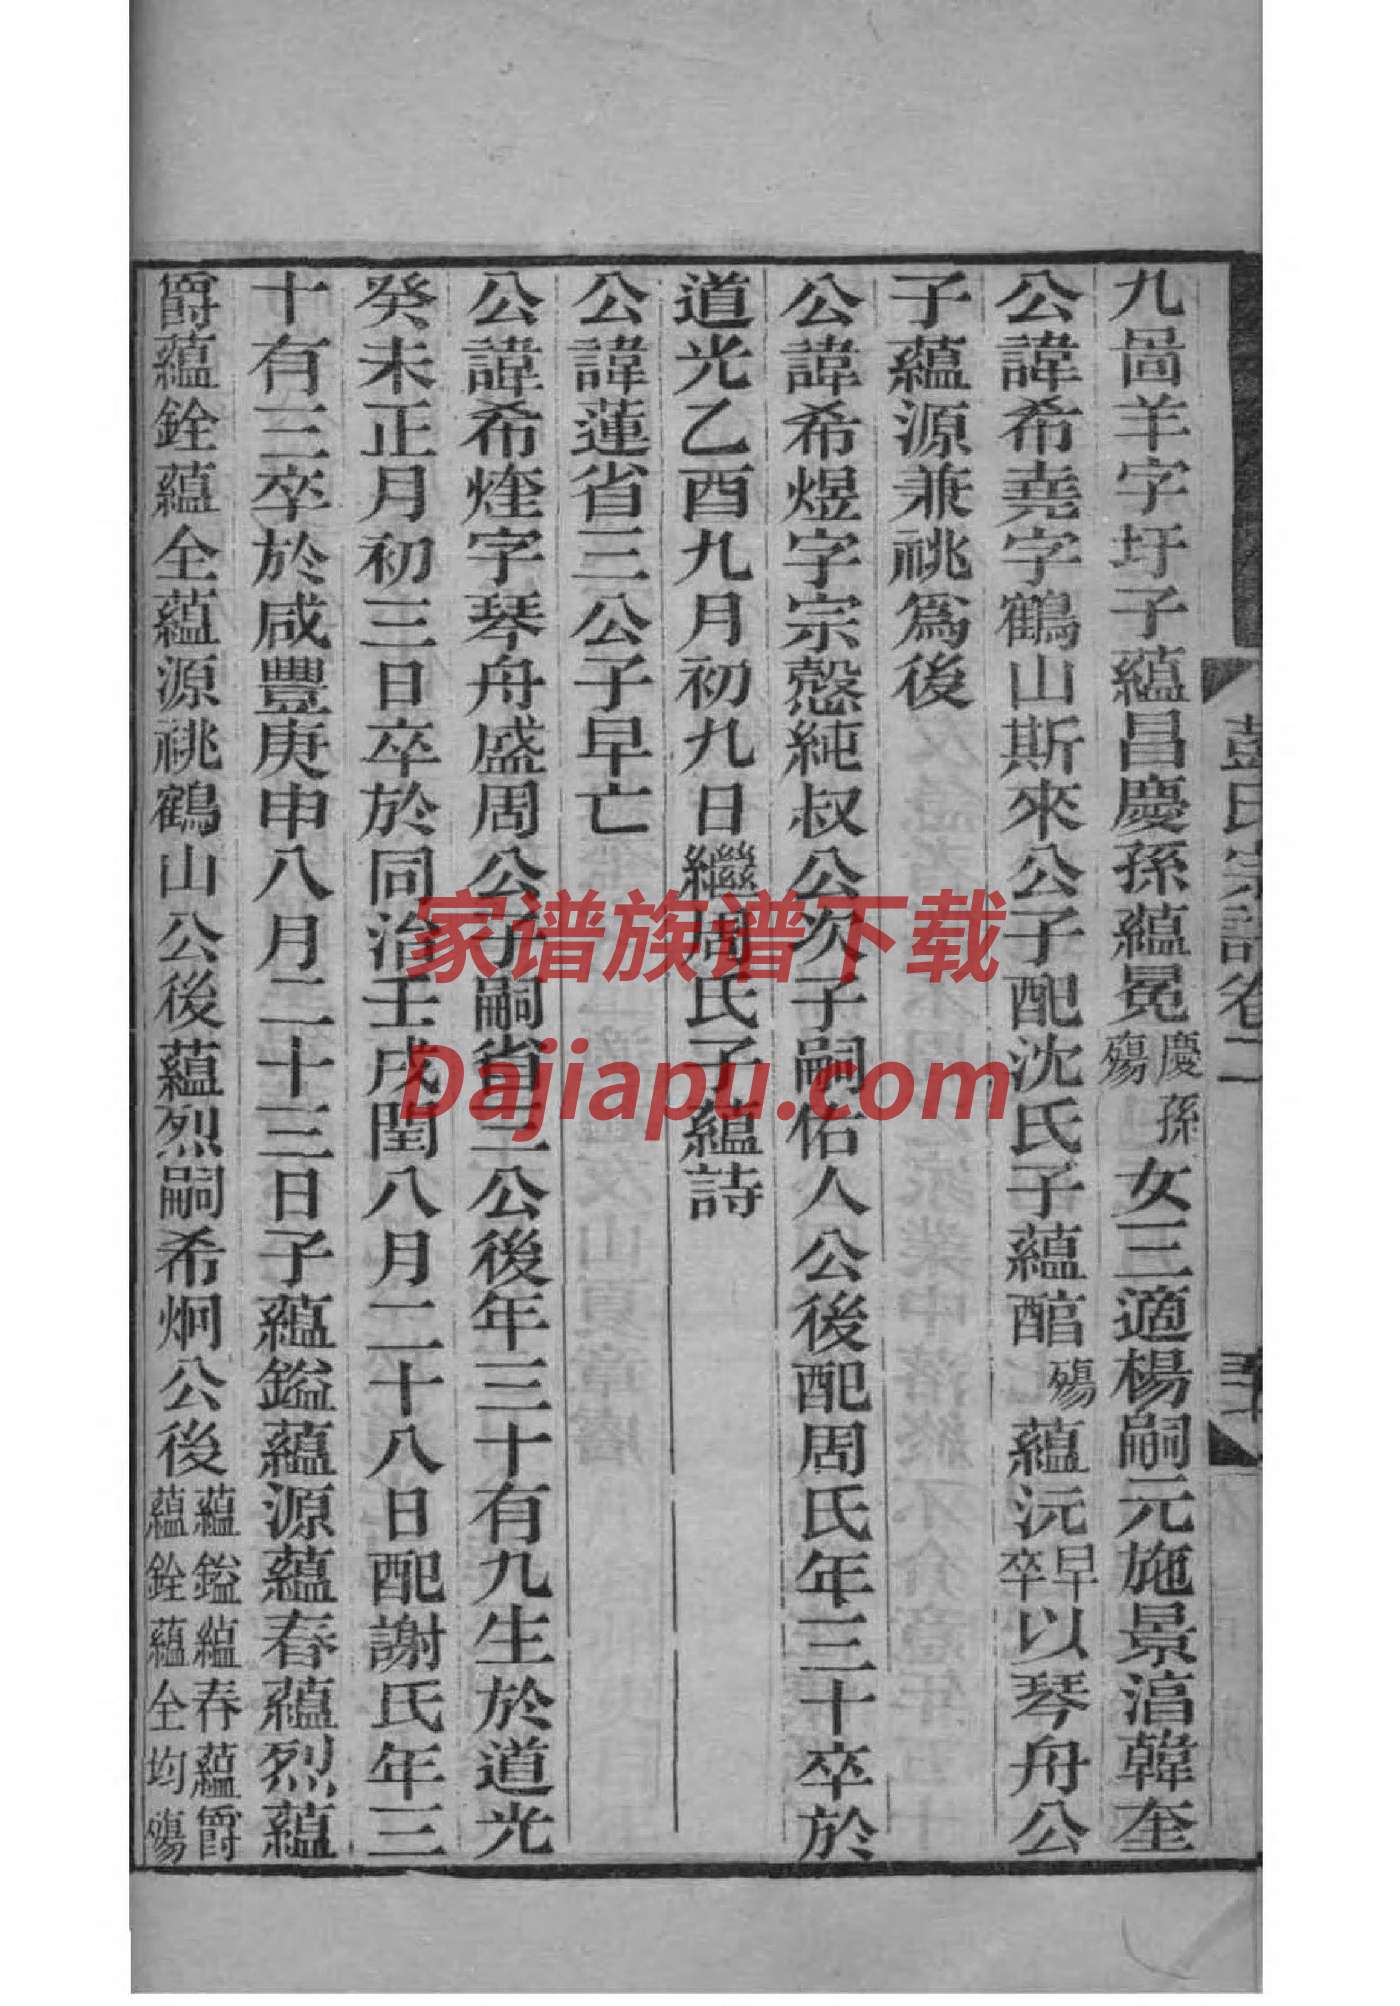 彭氏宗譜卷二
九啚羊字圩子蘊昌慶孫蘊冕慶孫殤女三適楊嗣元施景湻韓奎
公諱希堯字鶴山斯來公子配沈氏子蘊馆殤蘊沅早卒以琴舟公
子蘊源兼祧爲後
公諱希煜字宗慤純叔公次子嗣佑人公後配周氏年三十卒於
道光乙酉九月初九日繼周氏子蘊詩
公諱蓮省三公子早亡
公諱希煃字琴舟盛周公子嗣省三公後年三十有九生於道光
癸未正月初三日卒於同治壬戌閏八月二十八日配謝氏年三
十有三卒於咸豐庚申八月二十三日子蘊鎰蘊源蘊春蘊烈蘊
爵蘊銓蘊全蘊源祧鶴山公後蘊烈嗣希炯公後蘊鎰蘊春蘊爵蘊銓蘊全均殤
家谱族谱下载
Dajiapu.com